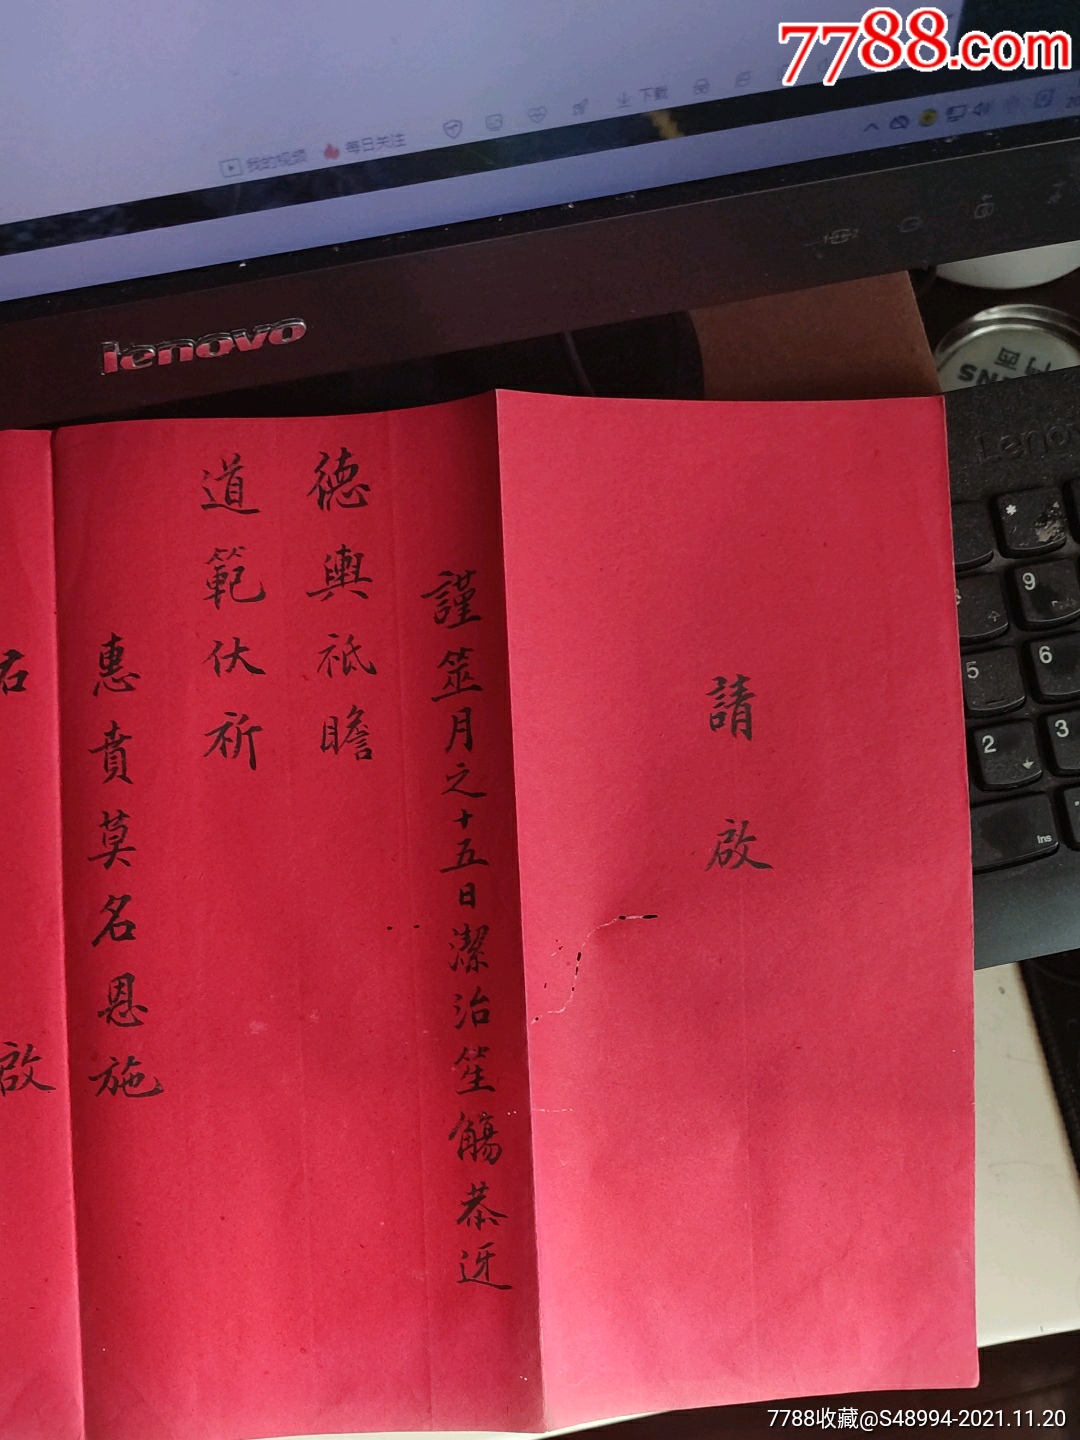 7788.com
我的视频 每日关注 下载
lenovo
Lenovo
請啟
謹筮月之十五日潔治笙觴恭迓
德輿祗瞻
道範伏祈
惠賁莫名恩施
右 啟
*
9
6
5
3
2
Ins
7788收藏@S48994-2021.11.20